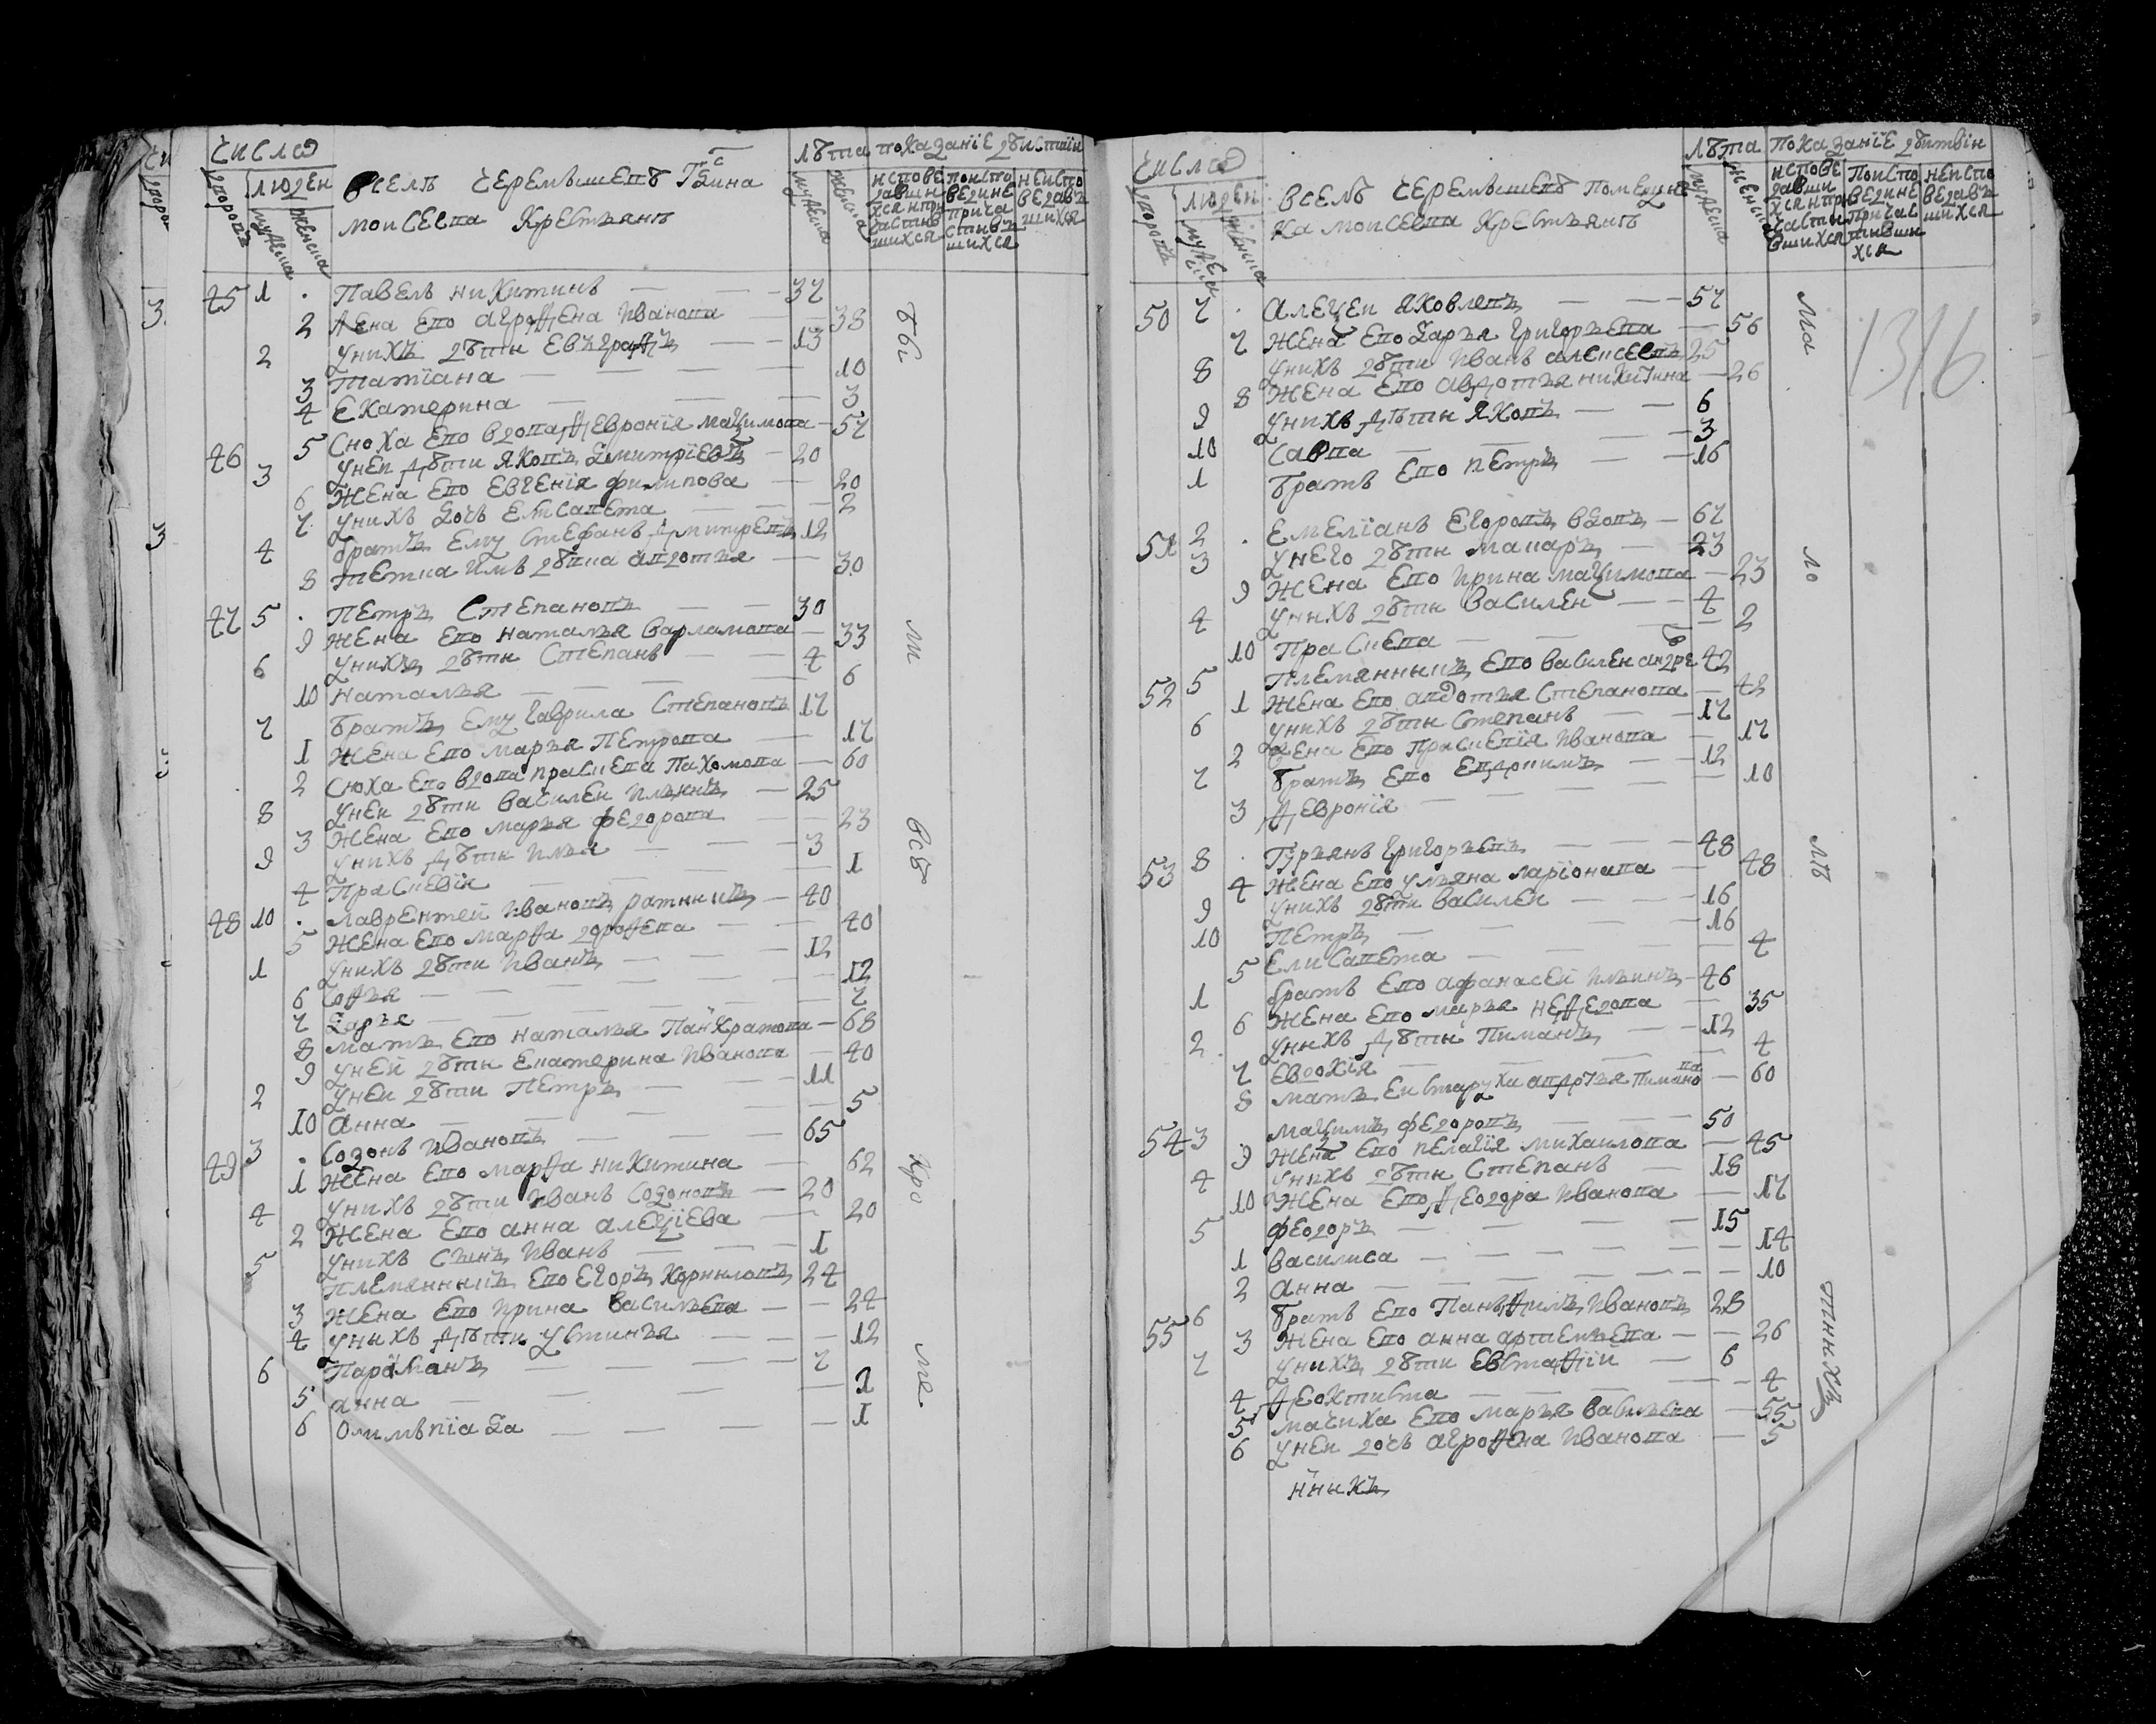 число
дворовъ
людей
мужеска
женска
в селѣ Черемышевѣ Г҃дина
Моисеева крестьянъ
лѣта
мужеска
женска
показаніе дѣйствій
исповѣдавшихся и причастившихся
по исповеди не причастившихся
не исповедавшихся
45 1 . Павелъ Никитинъ — 37
2 жена ево Агрофена Иванова — 38
2 у нихъ дѣти Евъграфъ — 13
3 Татіана — 10
4 Екатерина — 3
5 сноха ево вдова Ѳеѵронія Маѯимова — 57
46 3 у неи дѣти Яковъ Дмитріевъ — 20
6 жена ево Евгенія Филипова — 20
7 у нихъ дочь Елисавета — 2
4 братъ ему Стефанъ Дмитревъ 12
8 тетка имъ дѣвка Авдотья — 30
47 5 . Петръ Степановъ — 30
9 жена ево Наталья Варламова — 33
6 у нихъ дѣти Степанъ — 4
10 Наталья — 6
7 братъ ему Гаврила Степановъ 17
1 жена ево Марья Петрова — 17
2 сноха ево вдова Праскева Пахомова — 60
8 у неи дѣти Василеи Ильинъ — 25
3 жена ево Марья Федорова — 23
9 у нихъ дѣти Илья — 3
4 Праскевія — 1
48 10 . Лаврентей Ивановъ ратникъ — 40
5 жена ево Марѳа Дороѳева — 40
1 у нихъ дѣти Иванъ — 12
6 Соѳья — 12
7 Дарья — 7
8 мать ево Наталья Панкратова — 68
9 у ней дѣти Екатерина Иванова — 40
2 у неи дѣти Петръ — 11
10 Анна — 5
49 3 . Созонъ Ивановъ — 65
1 жена ево Марѳа Никитина — 62
4 у нихъ дѣти Иванъ Созоновъ — 20
2 жена ево Анна Алеѯіева — 20
5 у нихъ сынъ Иванъ — 1
племянникъ ево Егоръ Корниловъ 24
3 жена ево Ирина Васильева — 24
4 у ныхъ дѣти Устинья — 12
6 — 7
5 Анна — 1
6 Олимьпіада — 1
бы
ли
всѣ
кро
ме
число
дворовъ
людей
мужеска
женска
в селѣ Черемышевѣ помещика Моисеева крестьянъ
лѣта
мужеска
женска
показаніе дѣйствій
исповедавшихся и причастившихся
по исповедине причастившихся
не исповедавъшихся
1316
50 7 . Алеѯеи Яковлевъ — 57
7 жена ево Дарья Григорьева — 56
8 у нихъ дѣти Иванъ Алексеевъ 25
8 жена ево Авдотья Никитина — 26
9 у нихъ дѣти Яковъ — 6
10 Савва — 3
1 братъ ево Петръ — 16
51 2 . Емеліанъ Егоровъ вдовъ — 67
3 у него дѣти Макаръ — 23
9 жена ево Ирина Маѯимова — 23
4 у нихъ дѣти Василеи — 4
10 Праскева — 2
52 5 племянникъ ево Василеи Андре 42
1 жена ево Авдотья Степанова — 42
6 у нихъ дѣти Степанъ — 17
2 жена ево Праскевія Иванова — 17
7 братъ ево Евдокимъ — 12
3 Ѳевронія — 10
53 8 . Гурьянъ Григорьевъ — 48
4 жена ево Ульяна Ларіонава — 48
9 у нихъ дѣти Василеи — 16
10 Петръ — 16
5 Елисавета — 4
1 братъ ево Афанасей Ильинъ — 46
6 жена ево Марья Неѳедова — 35
2 у ныхъ дѣти Пиманъ — 12
7 Евдокія — 4
8 мать еи старуха Авдотья Пиманова — 60
54 3 . Маѯимъ Федоровъ — 50
9 жена ево Пелагія Михаилова — 45
4 у нихъ дѣти Степанъ — 18
10 жена ево Ѳеодора Иванова — 17
5 Феодоръ — 15
1 Василиса — 14
2 Анна — 10
55 6 братъ ево Панъѳилъ Ивановъ 28
3 жена ево Анна Артемьева — 26
7 у нихъ дѣти Евстаѳіи — 6
4 Ѳеоктиста — 4
5 мачиха ево Марья Васильева — 55
6 у неи дочь Агроѳена Иванова — 5
ма
ло
лѣ
тнихъ
нныхъ